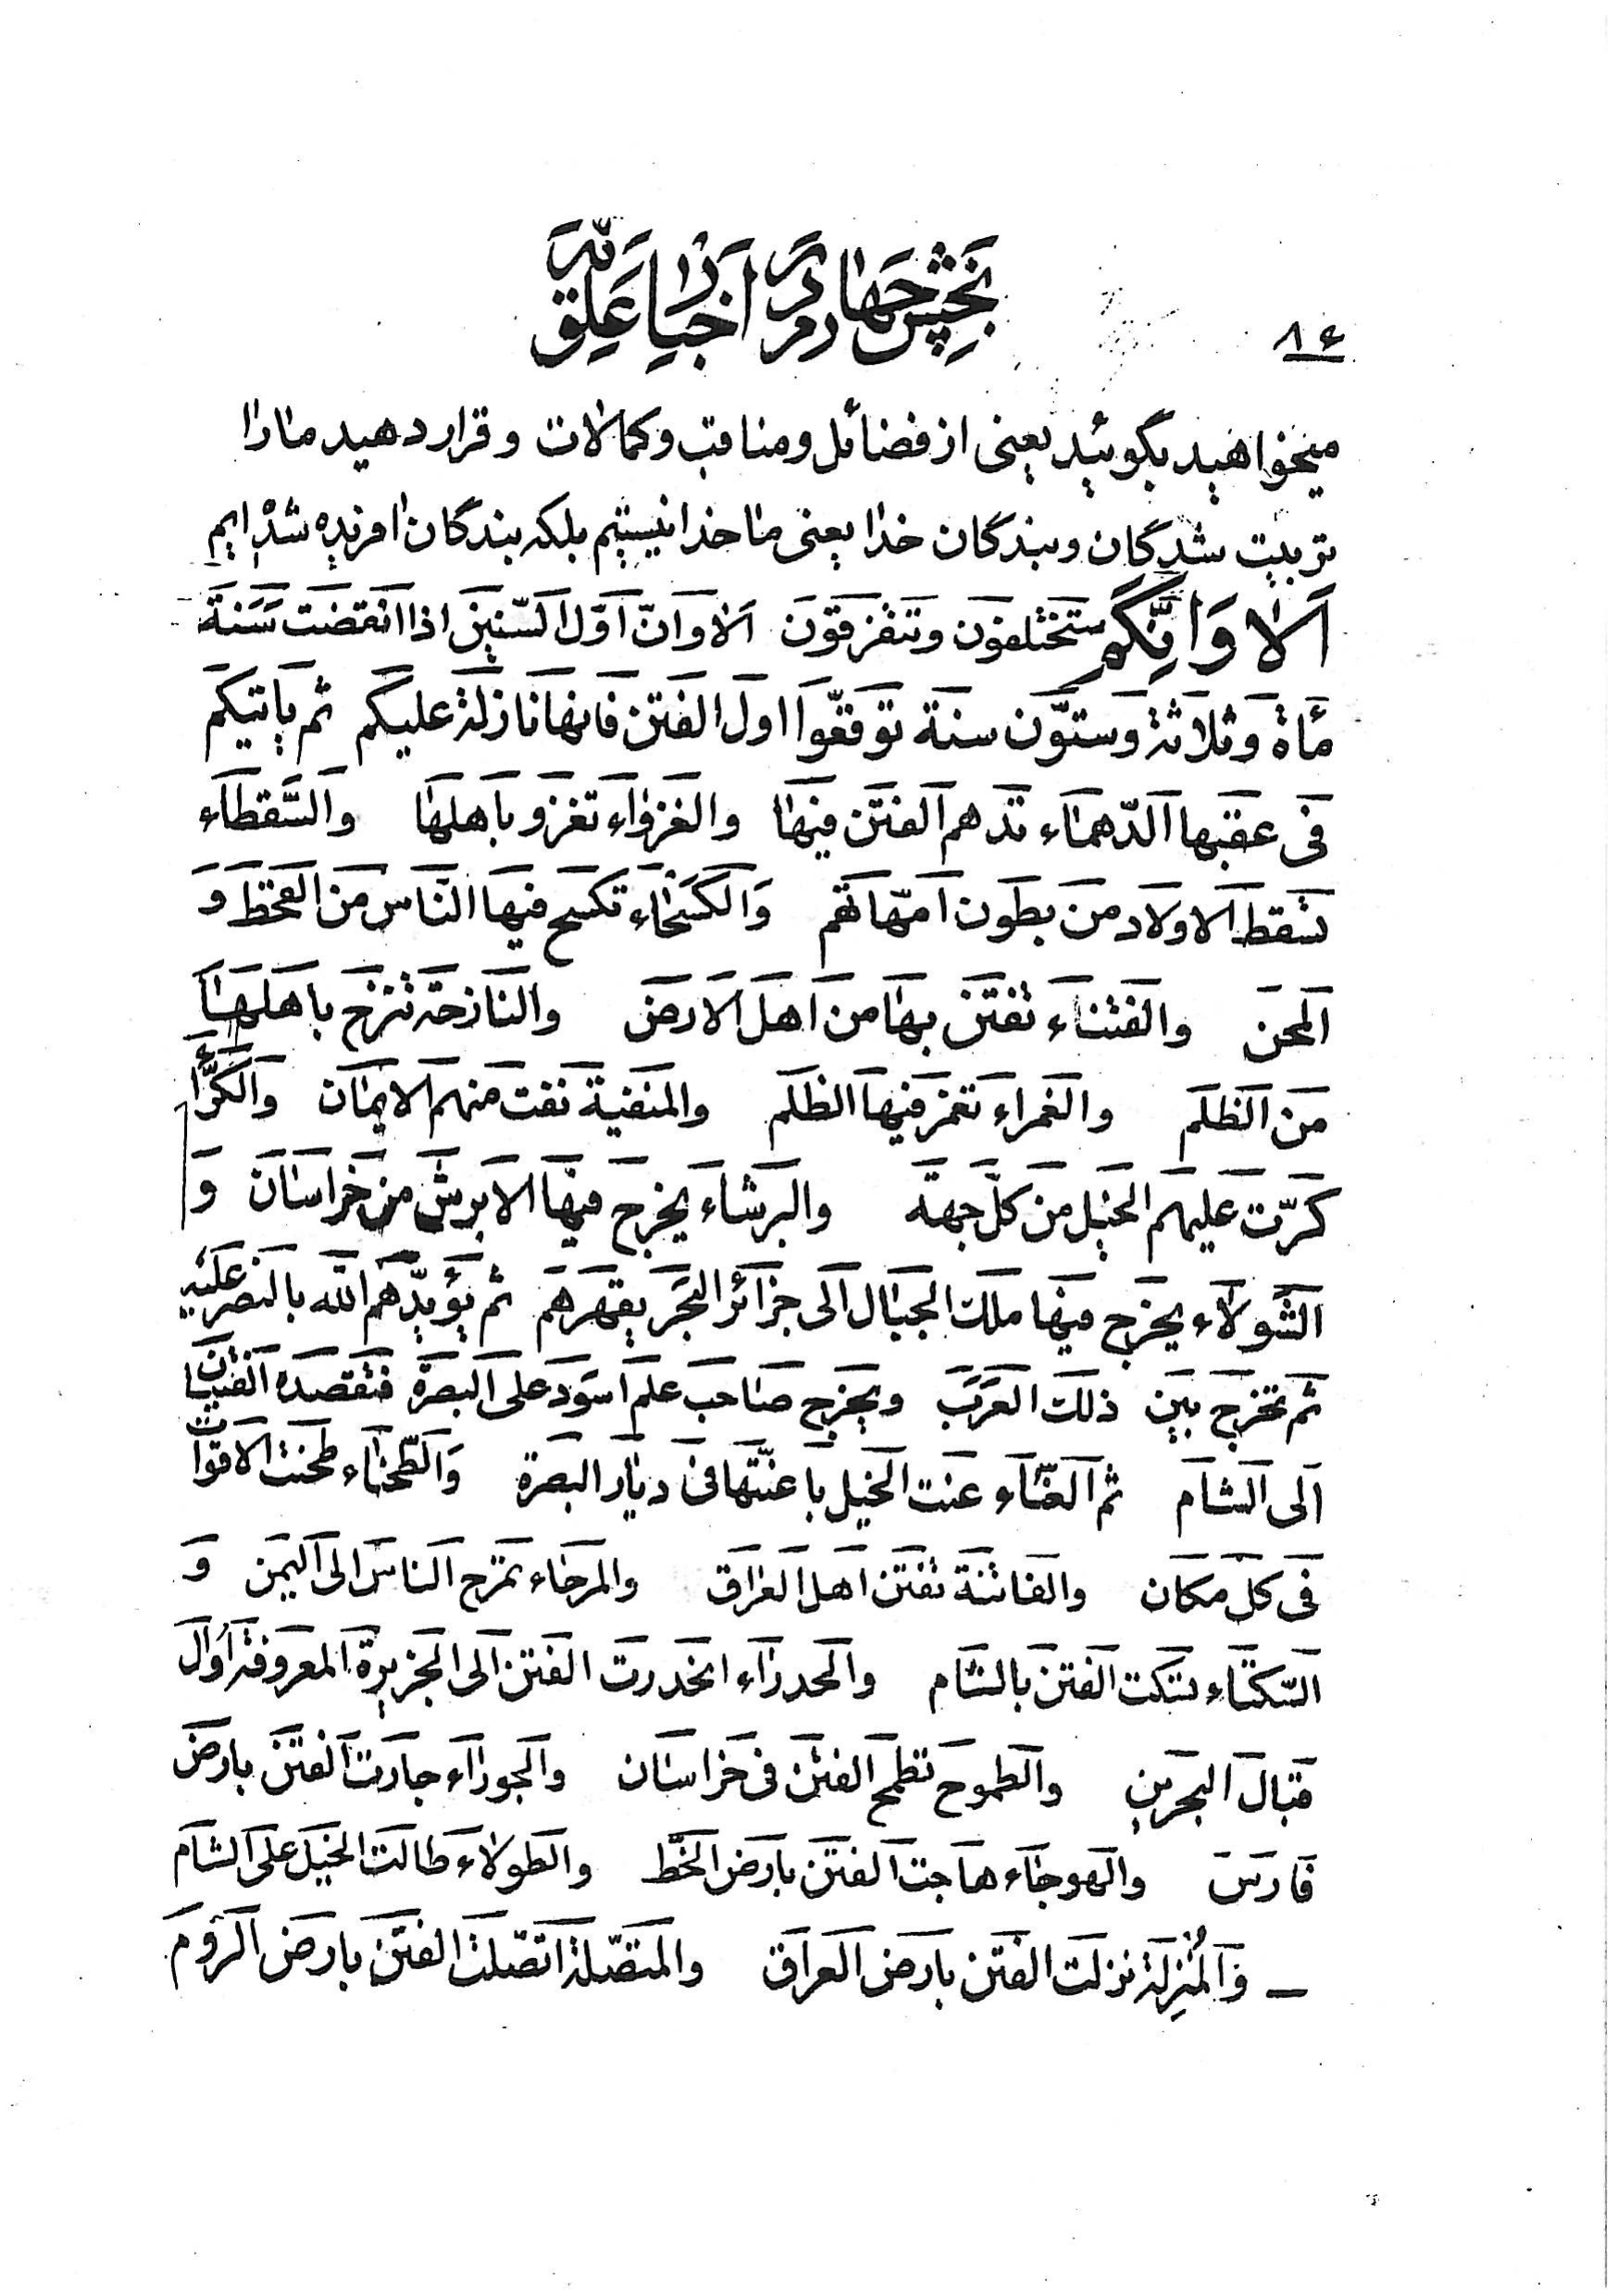 بخش چهارم در اخبار علویّه
٨٤
میخواهید بگوئید یعنی از فضائل و مناقب و کمالات و قرار دهید ما را
تربیت شدگان و بندگان خدا یعنی ما خدا نیستیم بلکه بندگان افریده شده ایم
الا و انّکم ستختلفون و تتفرقون الا و انّ اوّل السّنین اذا انقضت سنة
مأة و ثلاثة و ستّون سنة توقعّوا اول الفتن فانها نازلة علیکم ثم یاتیکم
فی عقبها الدّهماء تدهم الفتن فیها والغزواء تغزو باهلها والسّقطاء
تسقط الاولاد من بطون امّهاتهم والکسحاء تکسح فیها النّاس من القحط و
المحن والفتناء تفتن بها من اهل الارض والنازحة تنزح باهلها
من الظلم والغمراء تغمر فیها الظلم والمنفیة نفت منهم الایمان والکرّاء
کرّت علیهم الخیل من کلّ جهة والبرشاء یخرج فیها الابرش من خراسان و
الشولاء یخرج فیها ملک الجبال الی جزائر البحر یقهرهم ثم یؤیدّهم الله بالنصر علیه
ثم تخرج بین ذلک العرب و یخرج صاحب علم اسود علی البصرة فتقصده الفتیان
الی الشام ثم العنّاء عنت الخیل باعنّتها فی دیار البصرة والطّحناء طحنت الاقوات
فی کل مکان والفاتنة تفتن اهل العراق والمرحاء تمرح الناس الی الیمن و
السّکتاء سکتت الفتن بالشام والحدراء انحدرت الفتن الی الجزیرة المعروفة اُوال
قبال البحرین والطموح تطمح الفتن فی خراسان والجوراء جارت الفتن بارض
فارس والهوجاء هاجت الفتن بارض الخّط والطولاء طالت الخیل علی الشام
والمُنزلة نزلت الفتن بارض العراق والمتصّلة اتصّلت الفتن بارض الروم